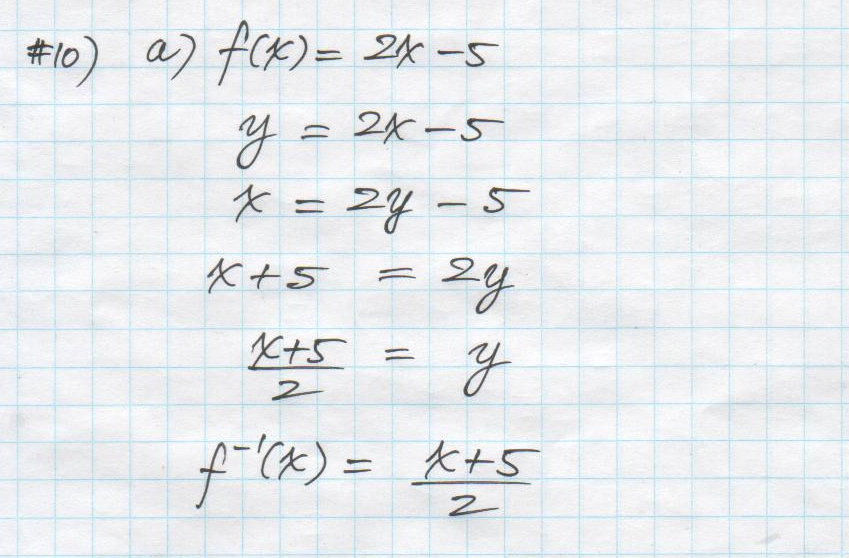 #10) a) f(x) = 2x - 5
y = 2x - 5
x = 2y - 5
x + 5 = 2y
(x+5)/2 = y
f⁻¹(x) = (x+5)/2